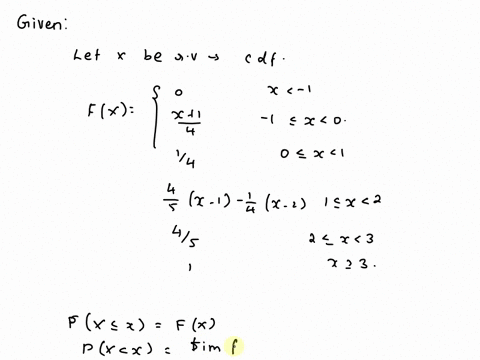 Given:
Let x be r.v → cdf.
F(x) = { 0 x < -1
x+1/4 -1 ≤ x < 0.
1/4 0 ≤ x < 1
4/5 (x-1) - 1/4 (x-2) 1 ≤ x < 2
4/5 2 ≤ x < 3
1 x ≥ 3.
P(X ≤ x) = F(x)
P(X < x) = lim f